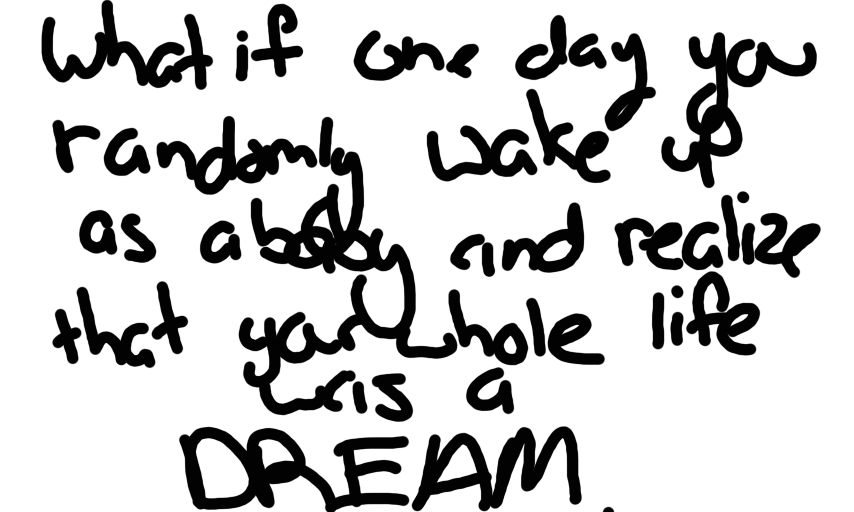 What if one day you
randomly wake up
as a baby and realize
that your whole life
was a
DREAM.